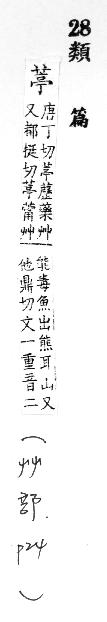 28類 篇
葶
唐丁切葶藶藥艸
又都挺切葶薴艸
能毒魚出熊耳山又
他鼎切文一重音二
(艸部. p24)